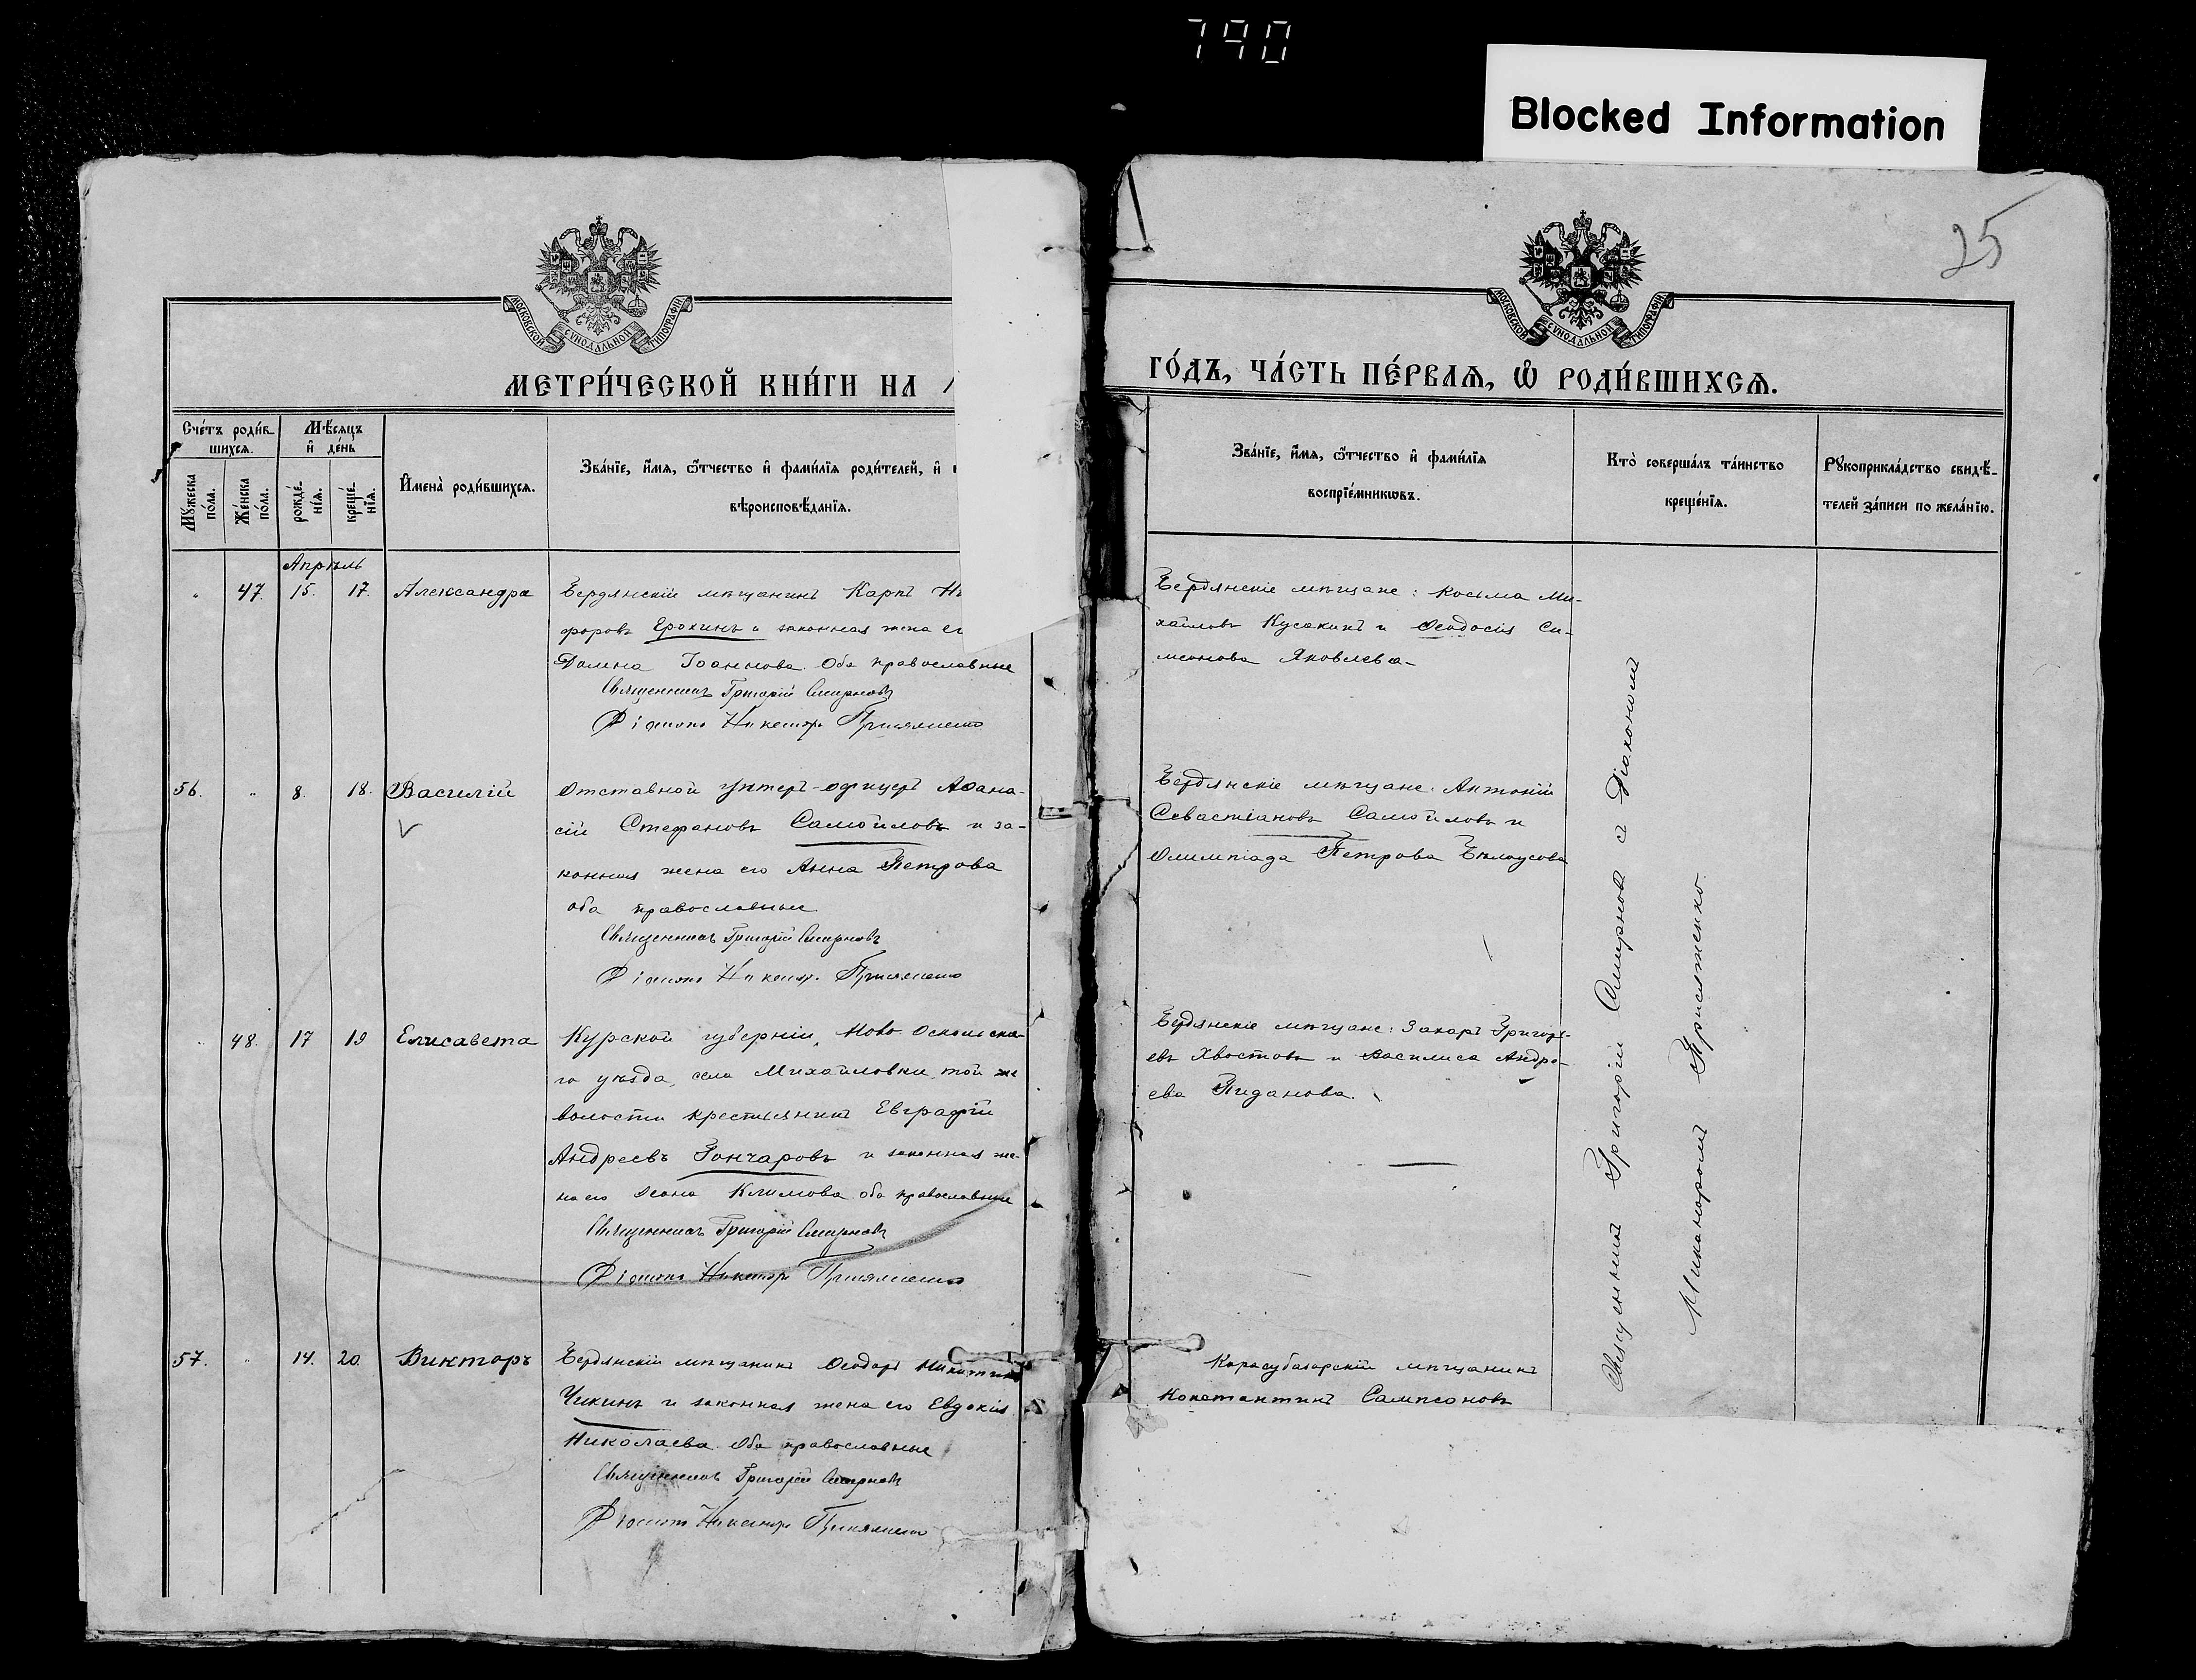 790
Blocked Information
25
МОСКОВСКОЙ СѴНОДАЛЬНОЙ ТИПОГРАФІИ
МОСКОВСКОЙ СѴНОДАЛЬНОЙ ТИПОГРАФІИ
МЕТРИ́ЧЕСКОЙ КНИ́ГИ НА 1
ГО́ДЪ, ЧА́СТЬ ПЕ́РВАѦ, Ѡ҆ РОДИ́ВШИХСѦ.
Сче́тъ роди́в-
шихсѧ.
Мѣ́сѧцъ
и҆ де́нь
Мꙋ́жеска по́ла.
Же́нска по́ла.
рожде́-
нїѧ.
креще́-
нїѧ.
И҆мена̀ роди́вшихсѧ.
Зва́нїе, и҆́мѧ, ѻ҆́тчество и҆ фами́лїѧ роди́телей, и҆
вѣроисповѣ́данїѧ.
Зва́нїе, и҆́мѧ, ѻ҆́тчество и҆ фами́лїѧ
воспрїе́мникѡвъ.
Кто̀ соверша́лъ та́инство
креще́нїѧ.
Рꙋкоприкла́дство свидѣ́-
телей за́писи по жела́нїю.
Апрѣль
47. 15. 17. Александра
Бердянскій мѣщанинъ Карпъ Ни
форовъ Ерохинъ и законная жена ег
Іоаннова. Оба православные
Священникъ Григорій Смирновъ
Діаконъ Никаноръ Присяженко
Бердянскіе мѣщане: Косьма Ми-
хайловъ Кусакинъ и Ѳеодосія Си-
меонова Яковлева
56. 8. 18. Василій
Отставной унтеръ-офицеръ Аѳана-
сій Стефановъ Самойловъ и за-
конная жена его Анна Петрова
оба православные
Священникъ Григорій Смирновъ
Діаконъ Никаноръ Присяженко
Бердянскіе мѣщане: Антоній
Севастіановъ Самойловъ и
Олимпіада Петрова Бѣлоусова
48. 17 19 Елисавета
Курской губерніи, Ново-Оскольска-
го уѣзда, села Михайловки, той же
волости крестьянинъ Евграфій
Андреевъ Гончаровъ и законная же-
на его Климова оба православные
Священникъ Григорій Смирновъ
Діаконъ Никаноръ Присяженко
Бердянскіе мѣщане: Захаръ Григорь-
евъ Хвостовъ и Василиса Андре-
ева Пиданова.
57. 14. 20. Викторъ
Бердянскій мѣщанинъ Ѳеодоръ Никитинъ
Чикинъ и законная жена его Евдокія
Николаева. Оба православные
Священникъ Григорій Смирновъ
Діаконъ Никаноръ Присяженко
Карасубазарскій мѣщанинъ
Константинъ Сампсоновъ
Священникъ Григорій Смирновъ с Діакономъ
Никаноромъ Присяженко.